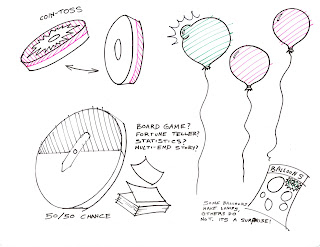 COIN-TOSS
BOARD GAME?
FORTUNE TELLER?
STATISTICS?
MULTI-END STORY?
50/50 CHANCE
BALLOONS
SOME BALLOONS
HAVE LAMPS,
OTHERS DO
NOT. ITS A SURPRISE!